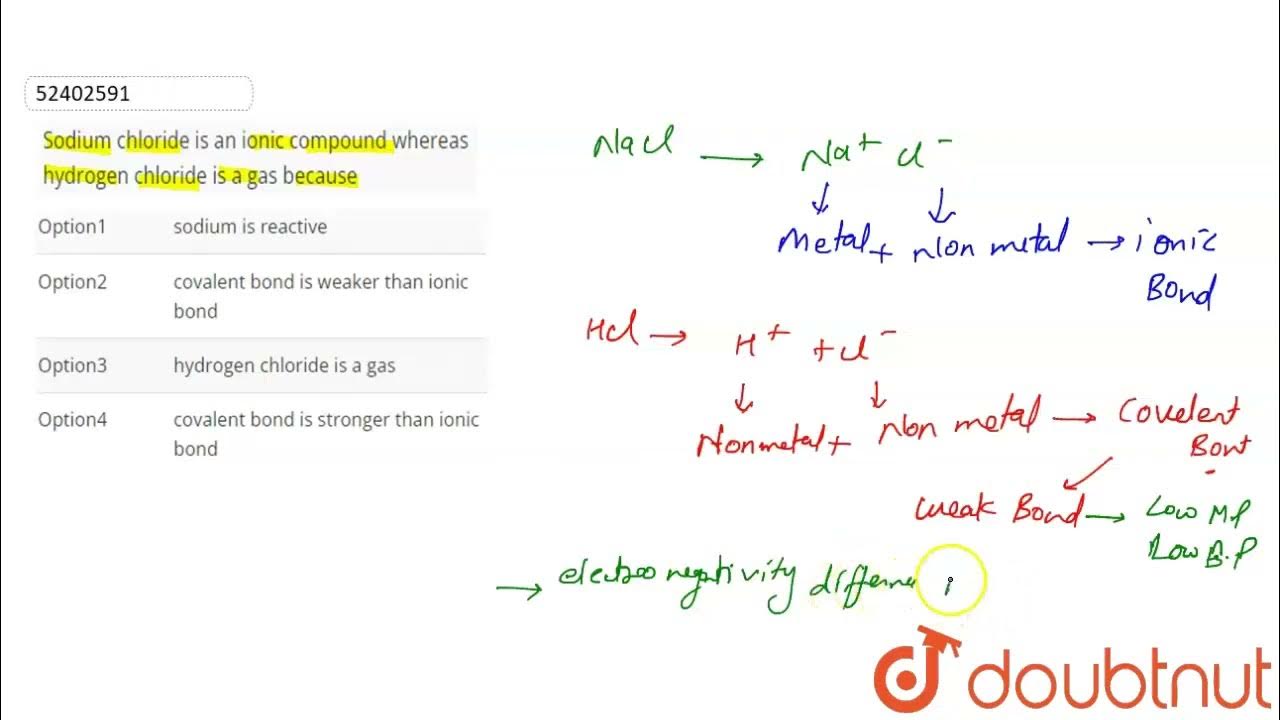 52402591
Sodium chloride is an ionic compound whereas
hydrogen chloride is a gas because
Option1 sodium is reactive
Option2 covalent bond is weaker than ionic
bond
Option3 hydrogen chloride is a gas
Option4 covalent bond is stronger than ionic
bond
NaCl → Na+ Cl-
↓ ↓
Metal + Non metal → ionic
Bond
HCl → H+ + Cl-
↓ ↓
Nonmetal + Non metal → Covelent
Bont
weak Bond → Low M.P
Low B.P
→ electronegativity differne
doubtnut